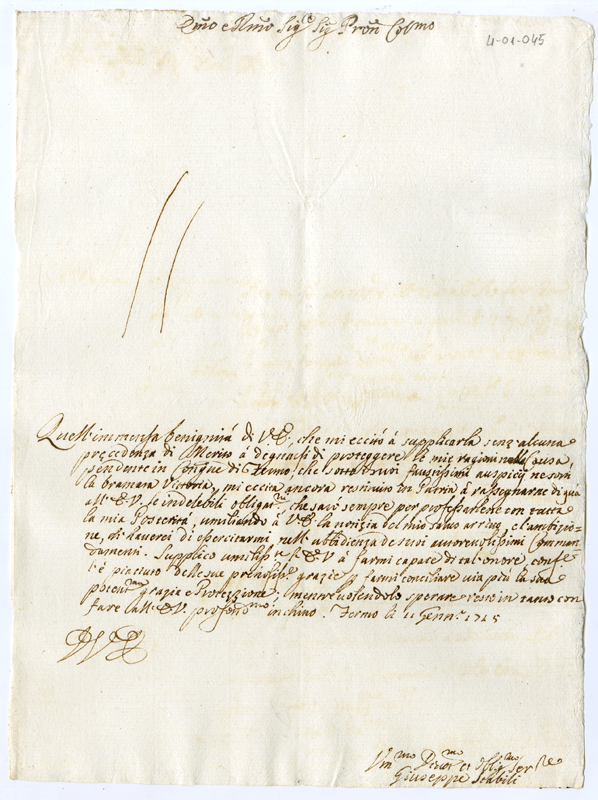 Sig.e Sig Pron Col.mo
4-01-045
Quell'immensa benignità di V.E., che mi eccitò à supplicarla senz'alcuna
precedenza di Merito à degnarsi di proteggere le mie ragioni nella Causa
pendente in Congne di Fermo, che sotto suoi faustissimi auspicij ne sortì
la bramata Vittoria, mi eccita ancora restituito in Patria à rassegnarne di già
all'E.V. le indelebili obligat.ni, che sarò sempre per professarlene con tutta
la mia Posterità, umiliando à V.E. la notizia del mio arrivo, e l'ambizio-
ne, di haverei di esercitarmi nell'ubbidienza de suoi autorevolissimi Comman-
damenti. Supplico l'E.V. à farmi capace di tal'onore conf.e
l'è piaciuto delle sue grazie p farmi conciliare via più la sua
grazia e Protezzione; mentre volendolo sperare resto in tanto con
fare all'E.V. profond.mo inchino. Fermo li 11 Genn.o 1725
D V E
Um.mo et Obligmo Ser.re
Giuseppe Stabili